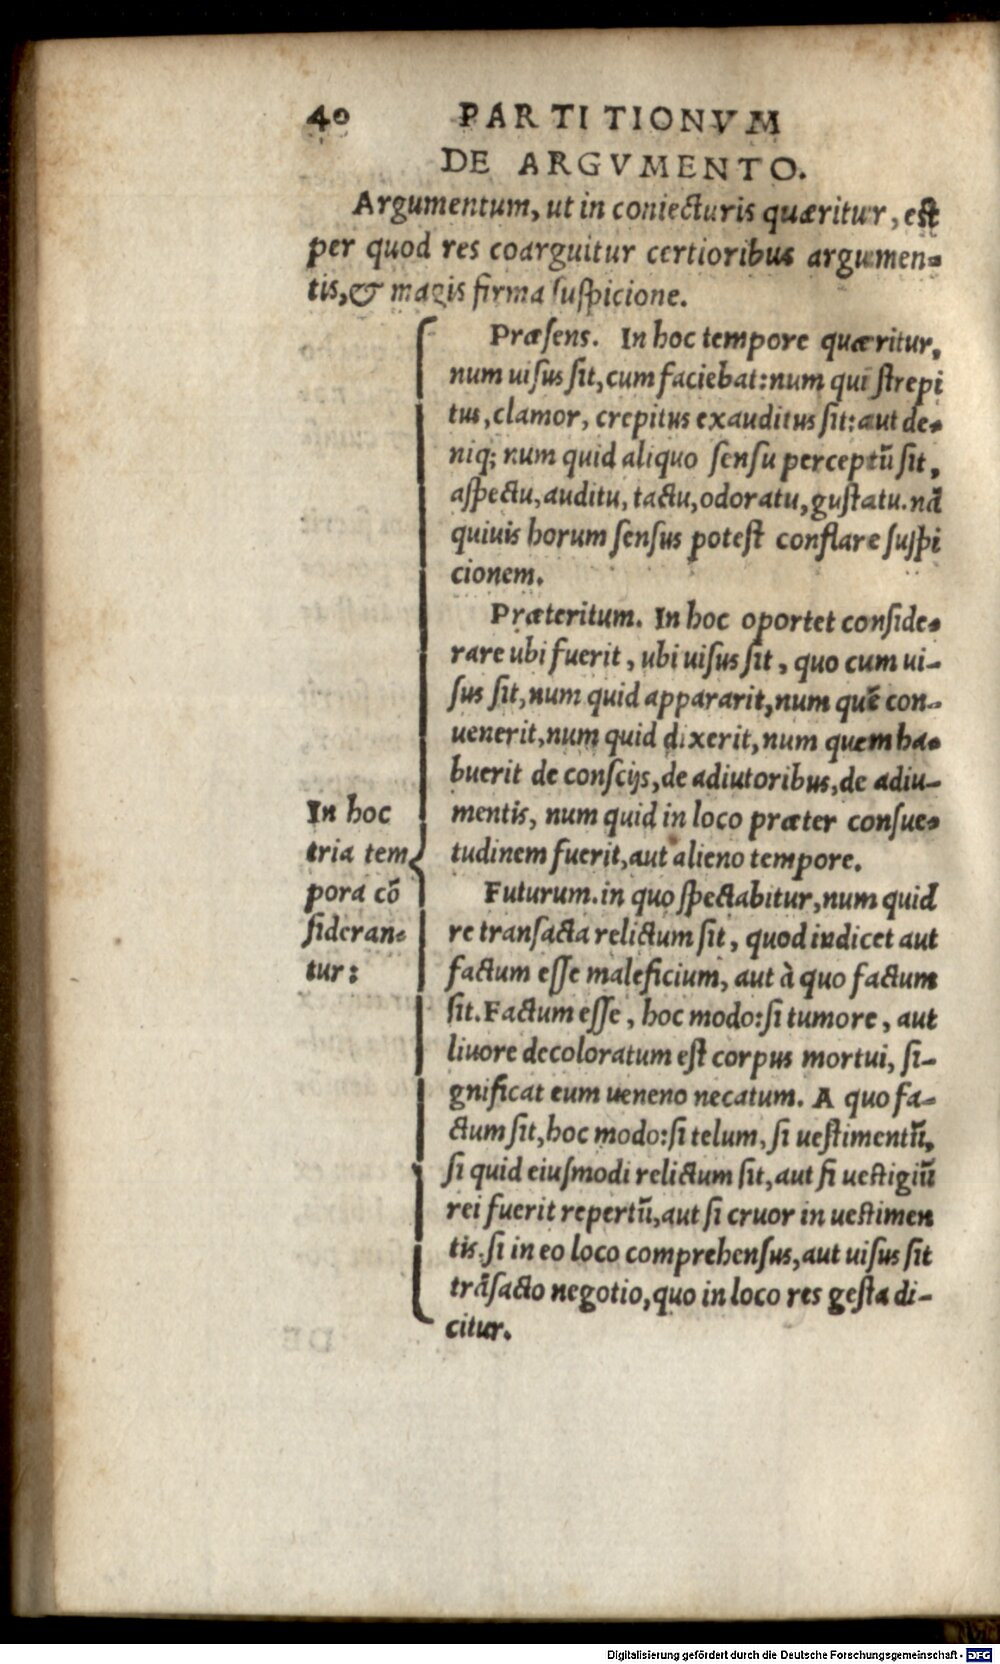 40 PARTITIONVM
DE ARGVMENTO.
Argumentum, ut in coniecturis quæritur, est
per quod res coarguitur certioribus argumen-
tis, & magis firma suspicione.
In hoc
tria tem
pora cõ
sideran-
tur:
Præsens. In hoc tempore quæritur,
num uisus sit, cum faciebat: num qui strepi
tus, clamor, crepitus exauditus sit: aut de-
niq; num quid aliquo sensu perceptũ sit,
aspectu, auditu, tactu, odoratu, gustatu. nã
quiuis horum sensus potest conflare suspi
cionem.
Præteritum. In hoc oportet conside-
rare ubi fuerit, ubi uisus sit, quo cum ui-
sus sit, num quid appararit, num quẽ con-
uenerit, num quid dixerit, num quem ha-
buerit de conscijs, de adiutoribus, de adiu-
mentis, num quid in loco præter consue-
tudinem fuerit, aut alieno tempore.
Futurum. in quo spectabitur, num quid
re transacta relictum sit, quod indicet aut
factum esse maleficium, aut à quo factum
sit. Factum esse, hoc modo: si tumore, aut
liuore decoloratum est corpus mortui, si-
gnificat eum ueneno necatum. A quo fa-
ctum sit, hoc modo: si telum, si uestimentũ,
si quid eiusmodi relictum sit, aut si uestigiũ
rei fuerit repertũ, aut si cruor in uestimen
tis. si in eo loco comprehensus, aut uisus sit
trãsacto negotio, quo in loco res gesta di-
citur.
Digitalisierung gefördert durch die Deutsche Forschungsgemeinschaft - DFG